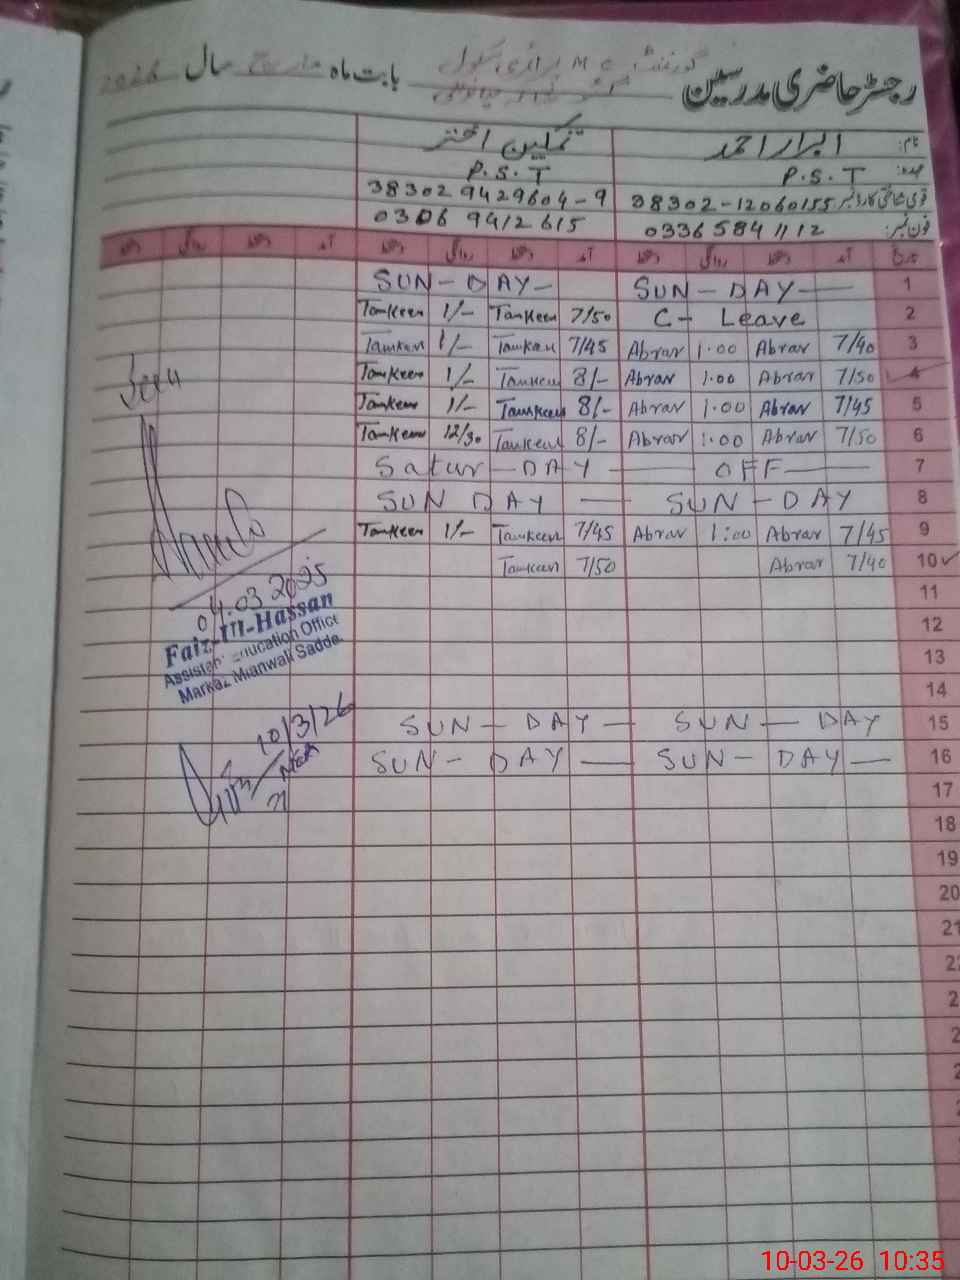 رجسٹر حاضری مدرسین گورنمنٹ M C پرائمری سکول بابت ماہ مارچ سال 2026
نام: ابرار احمد تمکین اختر
عہدہ: P.S.T P.S.T
قومی شناختی کارڈ نمبر 38302-12060155 38302 9429604-9
فون نمبر: 0336 5841112 0306 9412615
تاریخ آمد دستخط روانگی دستخط آمد دستخط روانگی دستخط آمد دستخط روانگی دستخط
SUN-DAY- SUN-DAY- 1
Tamkeen 1/- Tamkeen 7/50 C- Leave 2
Tamkeen 1/- Tamkeen 7/45 Abrar 1.00 Abrar 7/40 3
Tamkeen 1/- Tamkeen 8/- Abrar 1.00 Abrar 7/50 4
Seen
Tamkeen 1/- Tamkeen 8/- Abrar 1.00 Abrar 7/45 5
Tamkeen 12/30 Tamkeen 8/- Abrar 1.00 Abrar 7/50 6
Satur-DAY - OFF- 7
SUN DAY - SUN-DAY 8
Tamkeen 1/- Tamkeen 7/45 Abrar 1:00 Abrar 7/45 9
Tamkeen 7/50 Abrar 7/40 10
04.03.2025
11
Faiz-Ul-Hassan
12
Assistant Education Officer
Markaz Mianwali Saddar
13
14
10/3/26
SUN-DAY- SUN-DAY 15
MEA
SUN-DAY- SUN-DAY- 16
17
18
19
20
21
22
2
2
2
2
10-03-26 10:35